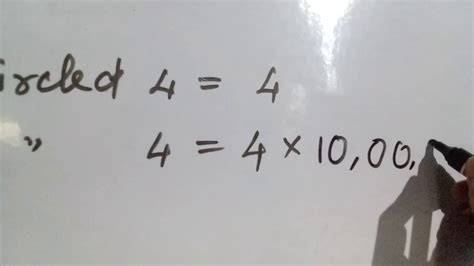 ircled 4 = 4
" 4 = 4 × 10,00,